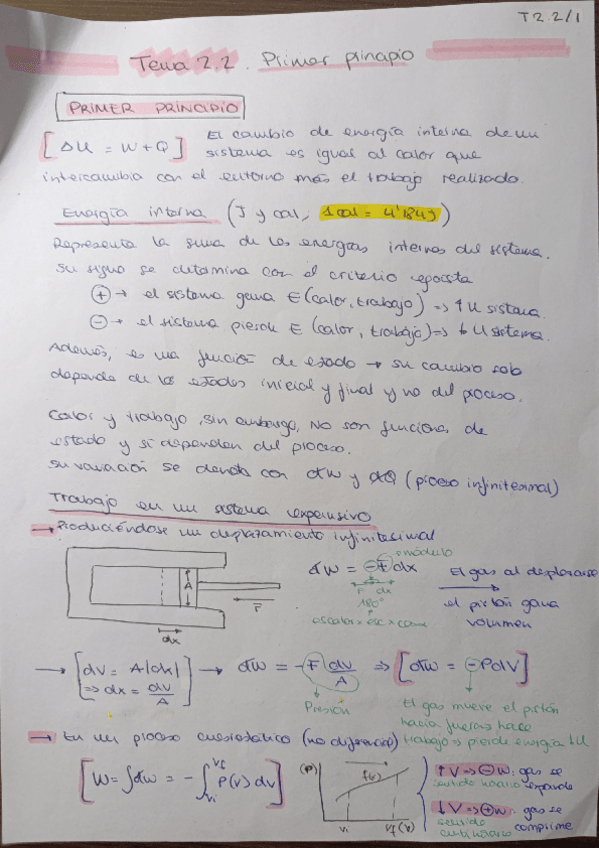 T2.2/1
Tema 2.2. Primer principio
PRIMER PRINCIPIO
[ΔU = W + Q] El cambio de energía interna de un
sistema es igual al calor que
intercambia con el entorno más el trabajo realizado.
Energía interna (J y cal, 1cal = 4'184J)
Representa la suma de las energías internas del sistema.
Su signo se determina con el criterio egoísta
⊕ → el sistema gana E (calor, trabajo) => ↑U sistema.
⊖ → el sistema pierde E (calor, trabajo) => ↓U sistema.
Además, es una función de estado → su cambio solo
depende de los estados inicial y final y no del proceso.
Calor y trabajo, sin embargo, NO son funciones de
estado y sí dependen del proceso.
Su variación se denota con đW y đQ (proceso infinitesimal)
Trabajo en un sistema expansivo
→ Produciéndose un desplazamiento infinitesimal
módulo
đW = -Fdx
F dx
180°
A
F
dx
El gas al desplazarse
el pistón gana
volumen
→ [dV = A|dx| => dx = dV/A] → đW = -F dV/A => [đW = -PdV]
Presión
El gas mueve el pistón
hacia fuera => hace
trabajo => pierde energía ↓U
→ En un proceso cuasiestático (no diferencial)
[W = ∫đW = -∫Vi Vf P(V) dV]
(P)
f(v)
Vi Vf (V)
↑V => ⊖W: gas se
sentido horario expande
↓V => ⊕W: gas se
sentido antihorario comprime